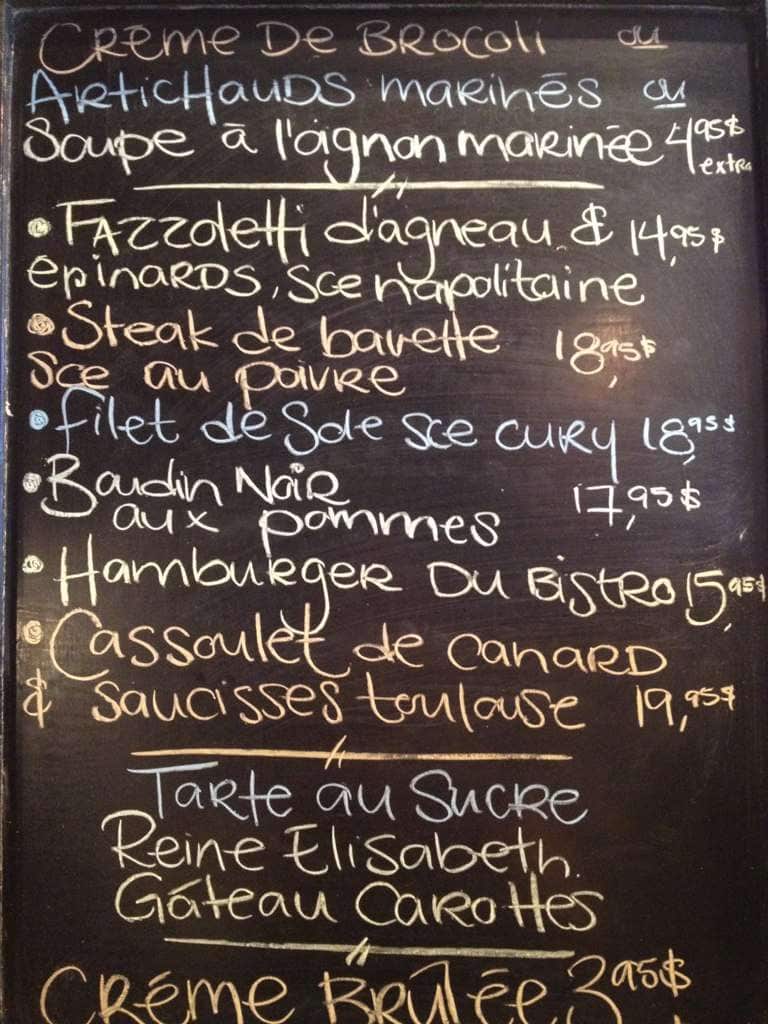 CRÈME DE BROCOLI ou
ARTICHAUDS MARINÉS ou
Soupe à l'oignon marinée 4,95$ extra
• FAZZOLETTI d'agneau & 14,95$
épinards, sce napolitaine
• Steak de bavette 18,95$
sce au poivre
• filet de sole sce cury 18,95$
• Boudin Noir 17,95$
aux pommes
• Hamburger Du Bistro 15,95$
• Cassoulet de canard
& saucisses toulouse 19,95$
Tarte au Sucre
Reine Elisabeth
Gâteau Carottes
CRÈME BRÛLÉE 3,95$